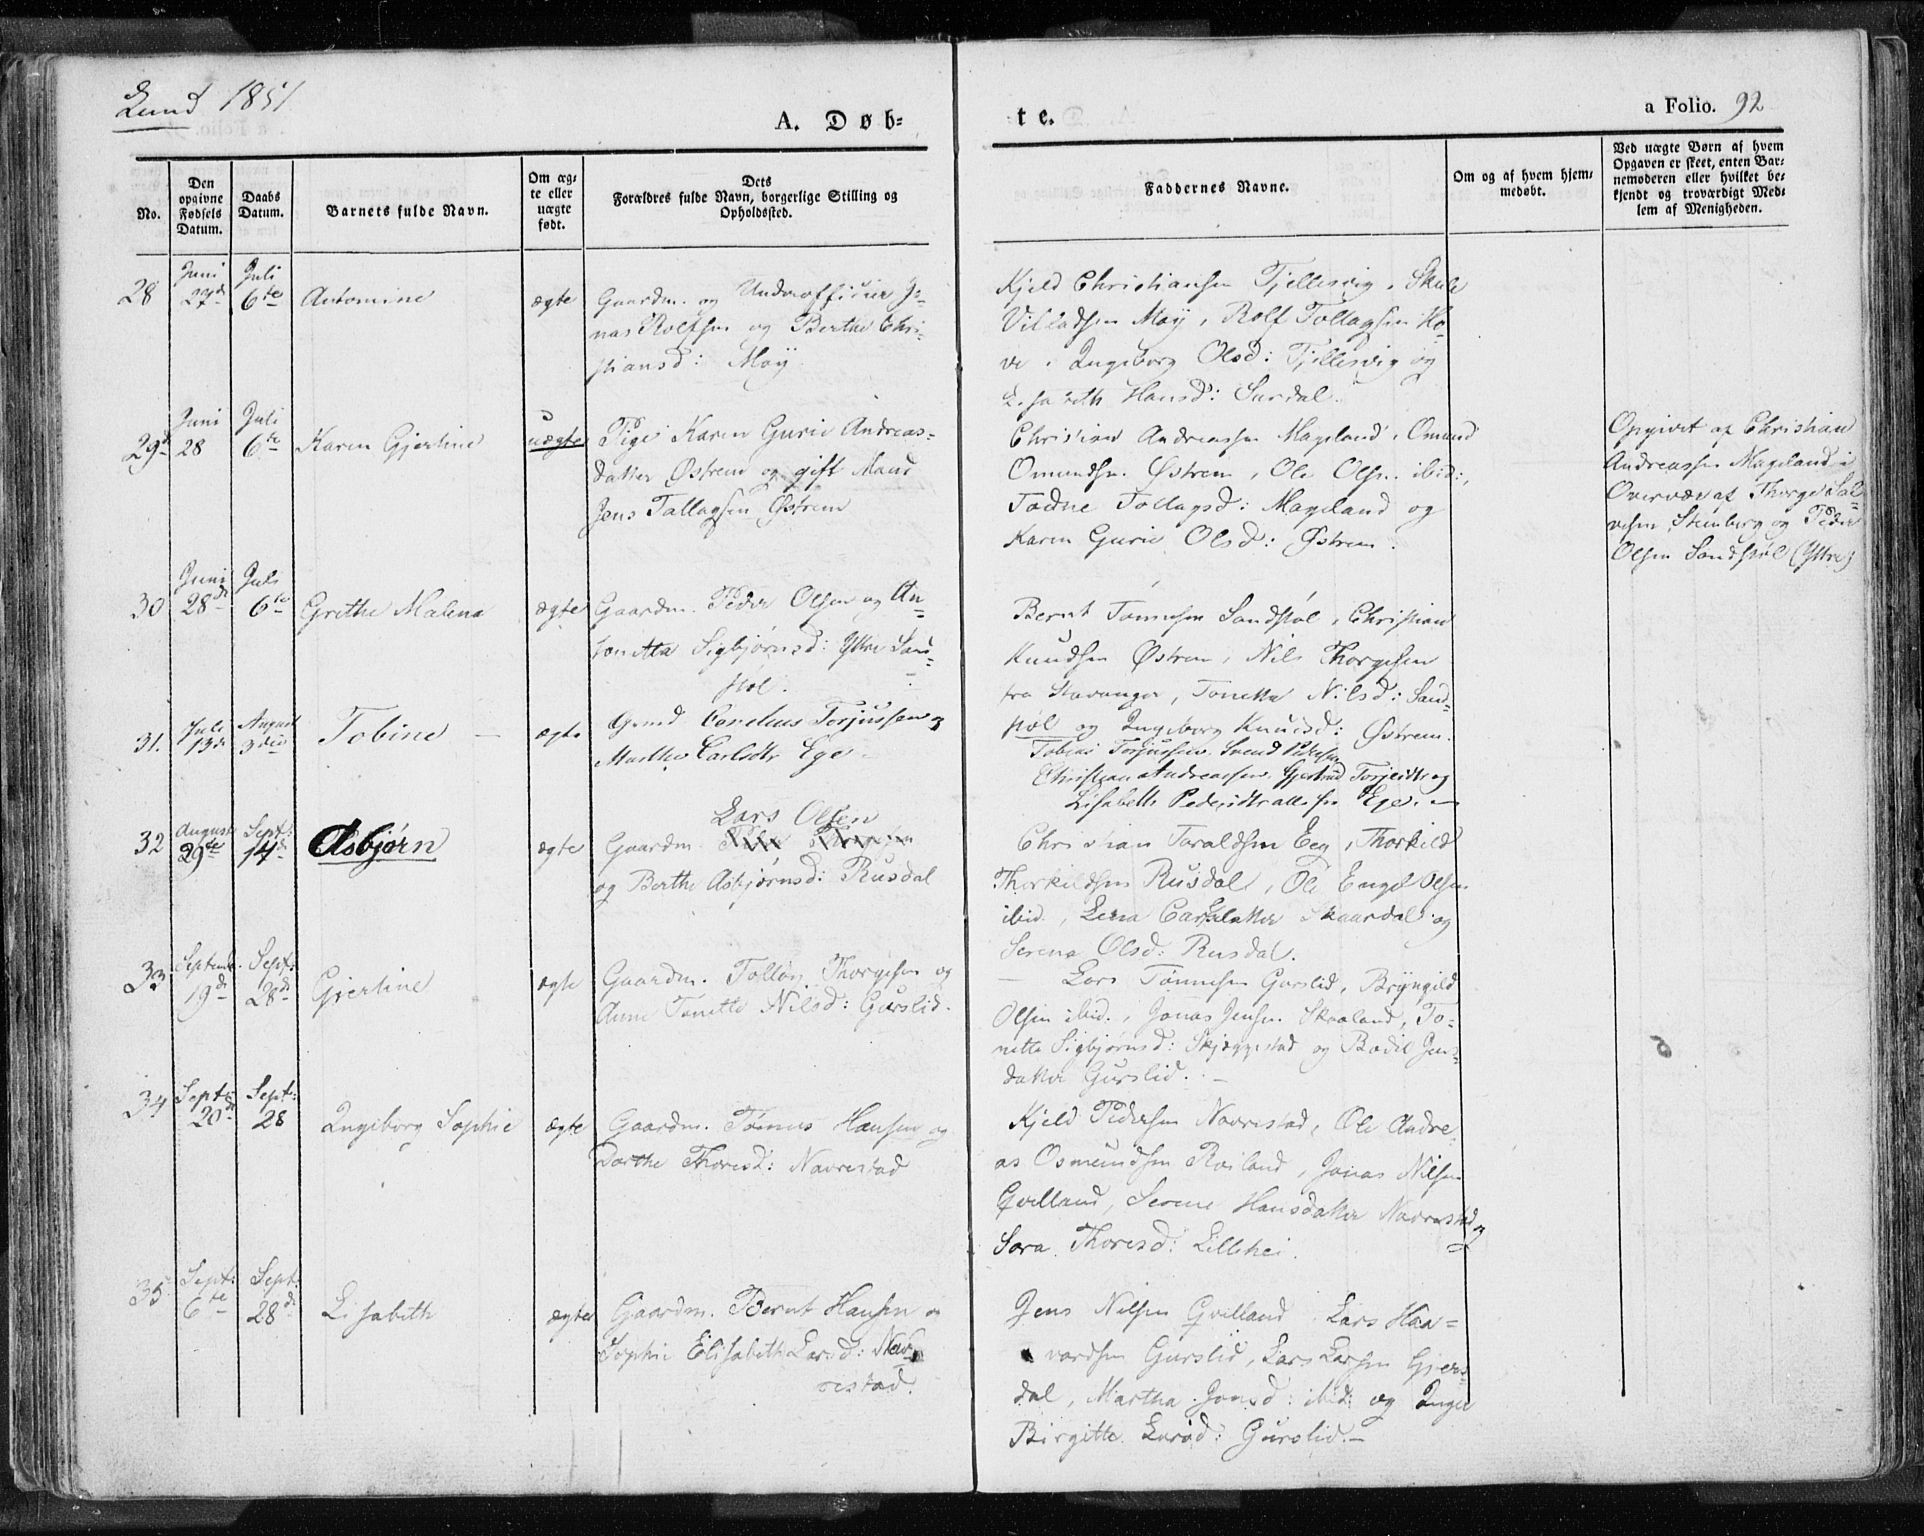 Lund 1851
A. Døb-
te.
a Folio. 92
No.
Den opgivne Fødsels Datum.
Daabs Datum.
Barnets fulde Navn.
Om æg-
te eller
uægte
født.
Dets
Forældres fulde Navn, borgerlige Stilling og
Opholdssted.
Faddernes Navne.
Om og af hvem hjem-
medøbt.
Ved uægte Børn af hvem
Opgaven er skeet, enten Bar-
nemoderen eller hvilket be-
kjendt og troværdigt Med-
lem af Menigheden.
28
Juni
27d
Juli
6te
Antomine
ægte
Gaardm. og Underofficier Jo-
nas Rolfsen og Berthe Chri-
stiansd: Moy.
Kjeld Christiansen Fjellesvig, Skule
Villadsen Moy, Rolf Tollagsen Ho-
ve, Ingeborg Olsd: Fjellesvig og
Lisabeth Hansd: Surdal.
29
Juni
28
Juli
6te
Karen Gjertine
uægte
Pige Karen Gurie Andreas-
datter Østrem og gift Mand
Jens Tallagsen Østrem
Christian Andreassen Mageland, Omund
Omundsen Østrem, Ole Olsen ibid:,
Todne Tollagsd: Mageland og
Karen Gurie Olsd: Østrem.
Opgivet af Christian
Andreassen Mageland i
Overvær af Thorge Sal-
vesen Steinberg og Peder
Olsen Sandstøl (Yttre)
30
Juni
28de
Juli
6te
Grethe Malena
ægte
Gaardm. Peder Olsen og An-
tonetta Sigbjørnsd: Yttre Sand-
støl.
Bernt Tønnesen Sandstøl, Christian
Knudsen Østrem, Nils Thorgesen
fra Stavanger, Tonette Nilsd: Sand-
støl og Ingeborg Knudsd: Østrem.
31.
Juli
13de
August
3die
Tobine
ægte
Grmd Cornelius Torjussen og
Marthe Carlsdtr Ege
Tobias Torjussen. Svend Pedersen
Christian Andreassen. Gjertrud Torjesdtr og
Lisabeth Pedersdtr alle fra Ege.
32
August
29te
Sept:
14de
Asbjørn
ægte
Lars Olsen
Gaardm.
og Berthe Asbjørnsd: Rusdal
Christian Taraldsen Eeg, Thorkild
Thorkildsen Rusdal, Ole Engel Olsen
ibid., Lena Carlsdatter Skaardal og
Serena Olsd: Rusdal.
33
Septemb.
19de
Sept:
28de
Gjertine
ægte
Gaardm. Tolløv Thorgesen og
Anne Tonette Nilsd: Gurslid.
Lars Tønnesen Gurslid, Bryngild
Olsen ibid., Jonas Jensen Skaaland, To-
nette Sigbjørnsd: Skjæggestad og Bodil Jens-
datter Gurslid.
34
Sept:
20de
Sept:
28
Ingeborg Sophie
ægte
Gaardm. Tønnes Hansen og
Dorthe Thoresd: Navrestad
Kjeld Pedersen Navrestad, Ole Andre-
as Osmundsen Roiland, Jonas Nilsen
Qvelland, Serene Hansdatter Navrestad og
Sara Thoresd: Lillehei.
35
Sept:
6te
Sept:
28de
Lisabeth
ægte
Gaardm. Bernt Hansen og
Sophie Elisabeth Larsd: Nav-
restad.
Jens Nilsen Qvelland, Lars Haa-
vardsen Gurslid, Lars Larsen Gjers-
dal, Martha Jonsd: ibid: og Inger
Birgitte Larsd: Gurslid.